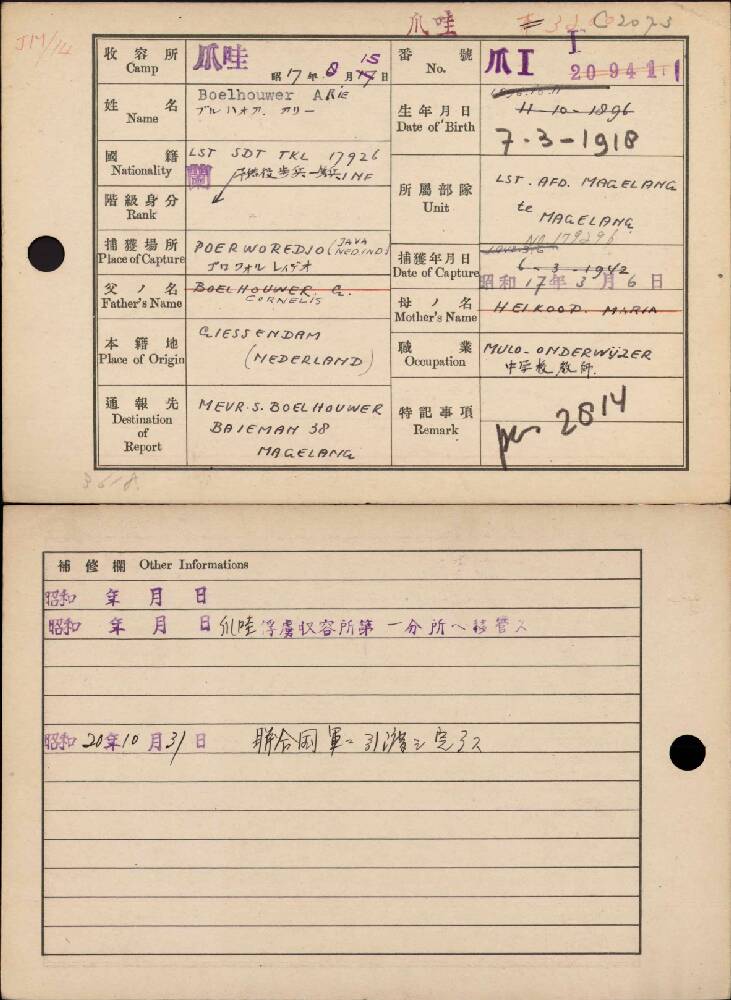 爪哇
C2073
JM/14
收容所 Camp
爪哇
昭17年8月15日
番號 No.
爪I
I
20941
姓名 Name
Boelhouwer ARIE
ブルハオア. アリー
生年月日 Date of Birth
11-10-1896
7-3-1918
國籍 Nationality
LST SDT TKL 17926
蘭
INF
階級身分 Rank
所屬部隊 Unit
LST. AFD. MAGELANG
te MAGELANG
No 179296
捕獲場所 Place of Capture
POERWOREDJO (JAVA NED IND)
捕獲年月日 Date of Capture
6-3-1942
昭和17年3月6日
父ノ名 Father's Name
BOELHOUWER. C.
CORNELIS
母ノ名 Mother's Name
HEIKOOP. MARIA
本籍地 Place of Origin
GIESSENDAM
(NEDERLAND)
職業 Occupation
MULO-ONDERWIJZER
中学校教師
通報先 Destination of Report
MEVR. S. BOELHOUWER
BAIEMAN 38
MAGELANG
特記事項 Remark
2814
補修欄 Other Informations
昭和 年 月 日
昭和 年 月 日 爪哇俘虜収容所第一分所ヘ移管ス
昭和20年10月31日 聯合国軍ニ引渡シ完了ス